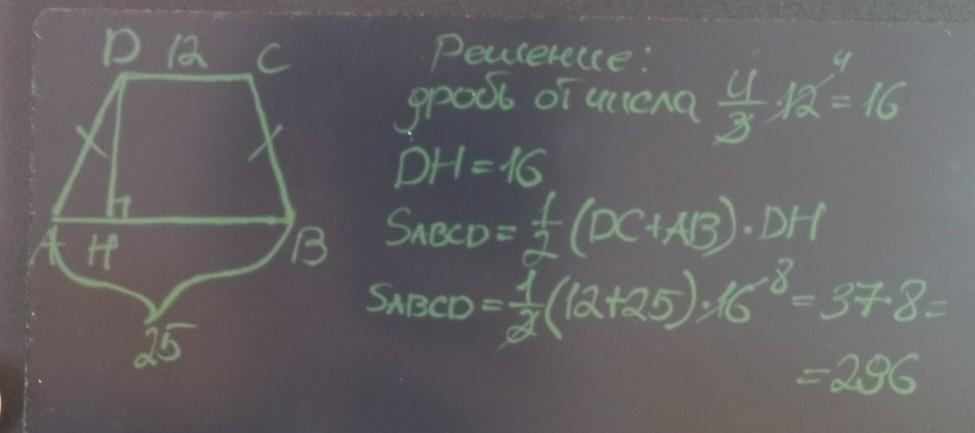 D 12 C
A H B
25
Решение:
дробь от числа 4/3 · 12 4 = 16
DH = 16
SABCD = 1/2 (DC + AB) · DH
SABCD = 1/2 (12 + 25) · 16 8 = 37 · 8 =
= 296